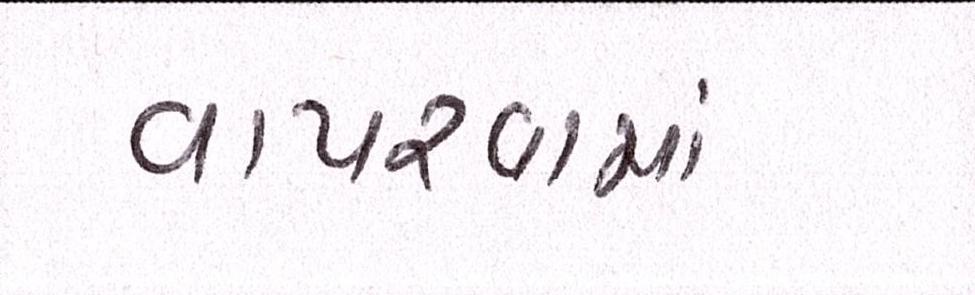 વાપરવામાં